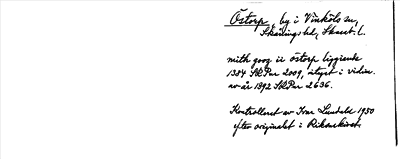 Östorp, by i Vinköls sn,
Skånings hd, Skarab. l.
mith gooz ii östorp liggiande
1384 SRPer 2009, utget i vidim.
av år 1392 SRPer 2636.
Kontrollerat av Ivar Lundahl 1950
efter originalet i Riksarkivet.